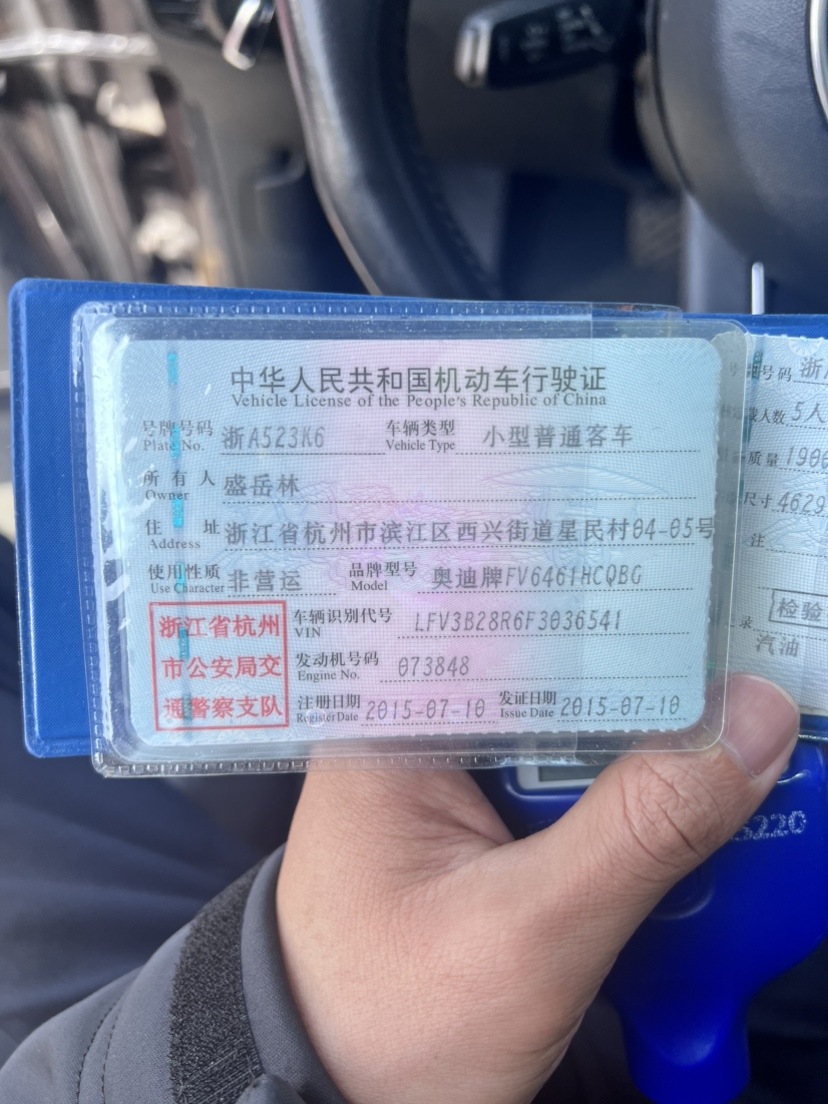 中华人民共和国机动车行驶证
Vehicle License of the People's Republic of China
号牌号码 浙A523K6 车辆类型 小型普通客车
Plate No. Vehicle Type
所有人 盛岳林
Owner
住址 浙江省杭州市滨江区西兴街道星民村04-05号
Address
使用性质 非营运 品牌型号 奥迪牌FV6461HCQBG
Use Character Model
浙江省杭州
市公安局交
通警察支队
车辆识别代号 LFV3B28R6F3036541
VIN
发动机号码 073848
Engine No.
注册日期 2015-07-10 发证日期 2015-07-10
Register Date Issue Date
号码 浙
载人数 5人
质量 190
尺寸 4629
注
检验
录
汽油
220